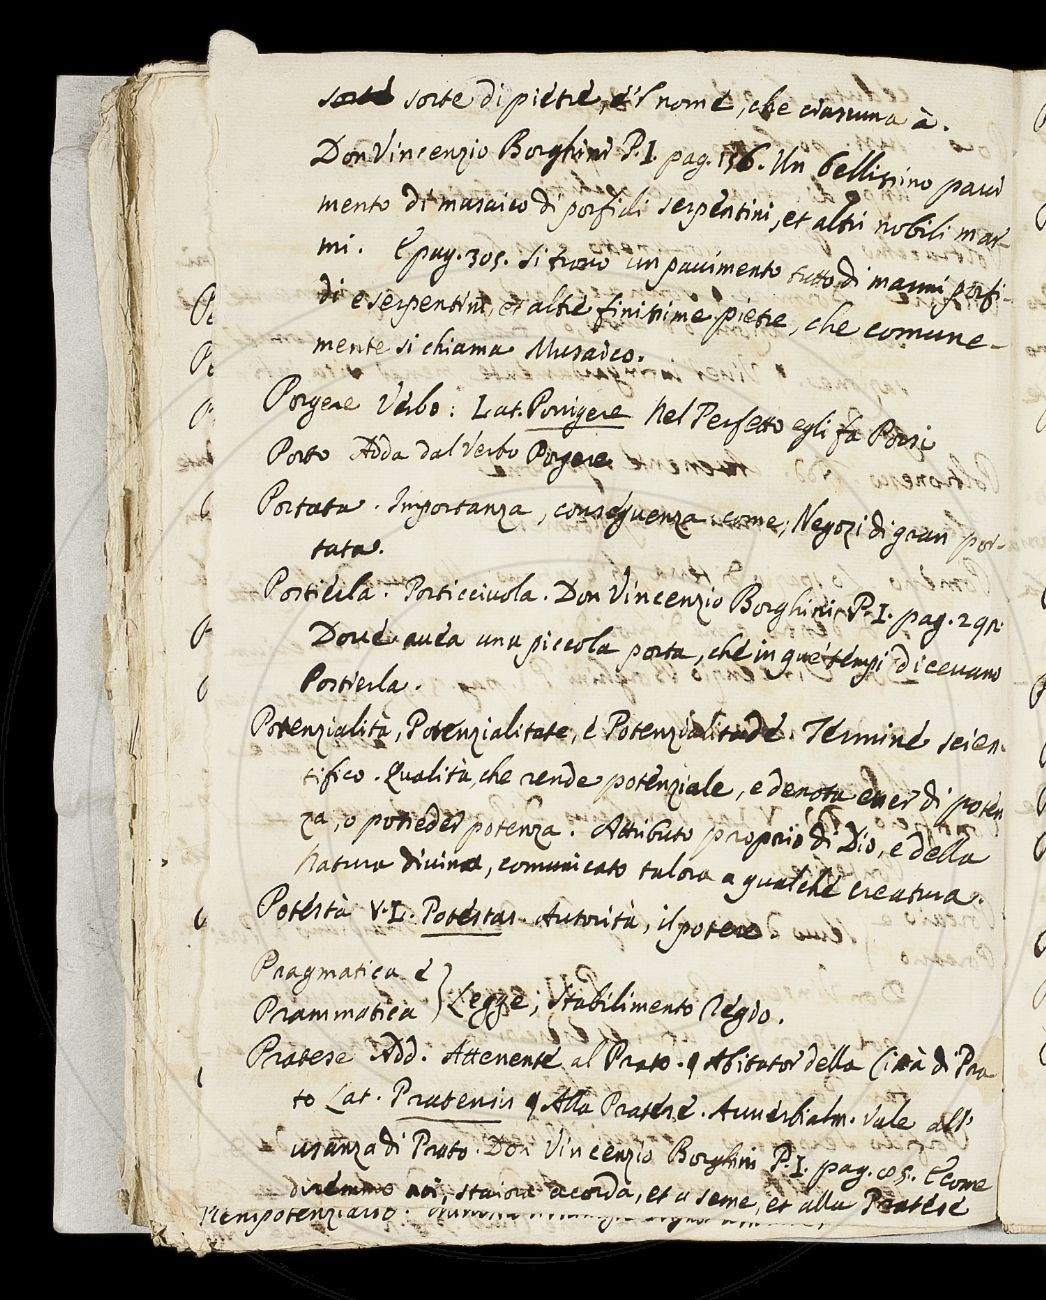 sorte di pietre, e 'l nome, che ciascuna à.
Don Vincenzio Borghini P. I. pag. 156. Un bellissimo paui
mento di musaico di porfidi serpentini, et altri nobili mar-
mi. E pag. 305. Si trovò un pauimento tutto di marmi porfi-
di e serpentini, et altre finissime pietre, che comune-
mente si chiama Musaico.
Porgere Verbo: Lat. Porrigere Nel Perfetto egli fa Porsi
Porto Add. dal Verbo Porgere.
Portata. Importanza, conseguenza come, Negozi di gran por-
tata.
Portierla. Porticciuola. Don Vincenzio Borghini P. I. pag. 291.
Doue auea una piccola porta, che in que' tempi diceuano
Portierla.
Potenzialità, Potenzialitate, e Potenzialitade. Termine scien-
tifico. Qualità, che rende potenziale, e denota esser di poten
za, o posseder potenza. Attributo proprio di Dio, e della
Natura diuina, comunicato talora a qualche creatura.
Potestà V. L. Potestas. Autorità, il potere.
Pragmatica e
Prammatica } Legge, Stabilimento Regio.
Pratese Add. Attenente al Prato. ¶ Abitator della Città di Pra
to Lat. Pratensis ¶ Alla Pratese. Auuerbialm. Vale all'
usanza di Prato. Don Vincenzio Borghini P. I. pag. E come
diremmo noi, staiora a corda, et a seme, et alla Pratese